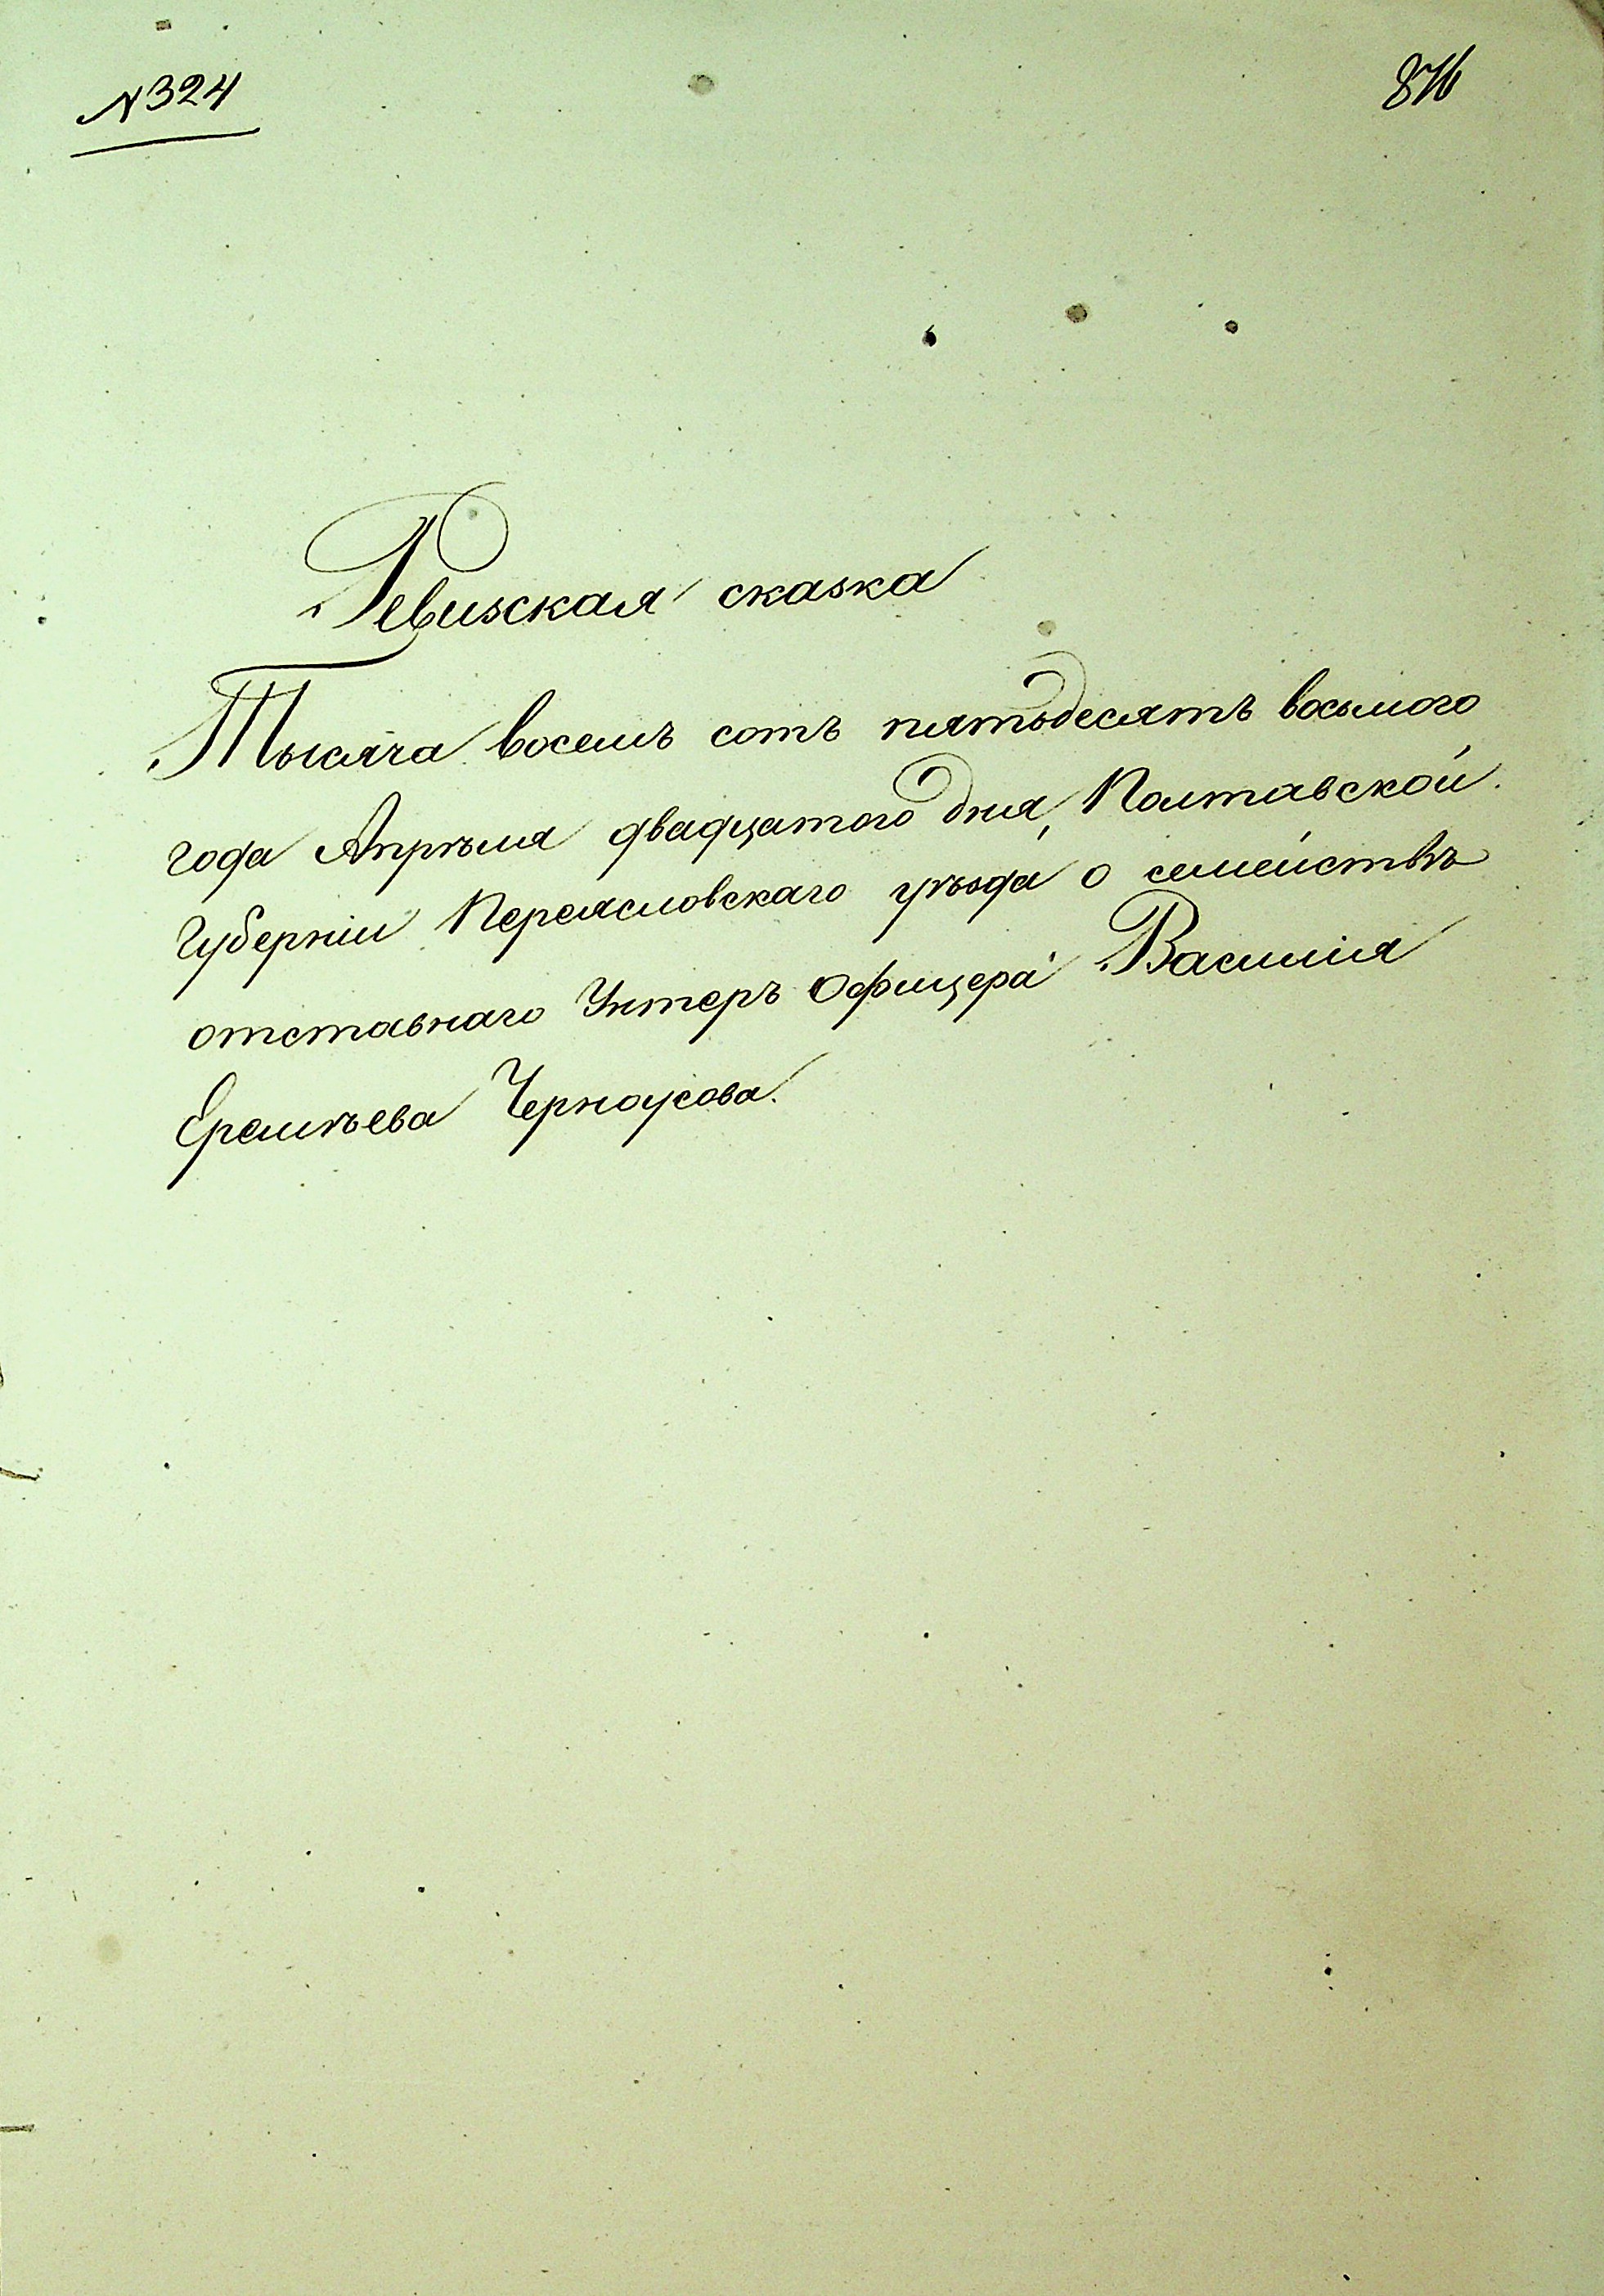 N324
876
Ревизская сказка
Тысяча восемь сотъ пятьдесятъ восьмого
года Апрѣля двадцатого дня, Полтавской
Губерніи Переясловскаго уѣзда о семействѣ
отставнаго Унтеръ Офицера Василія
Еремѣева Черноусова.